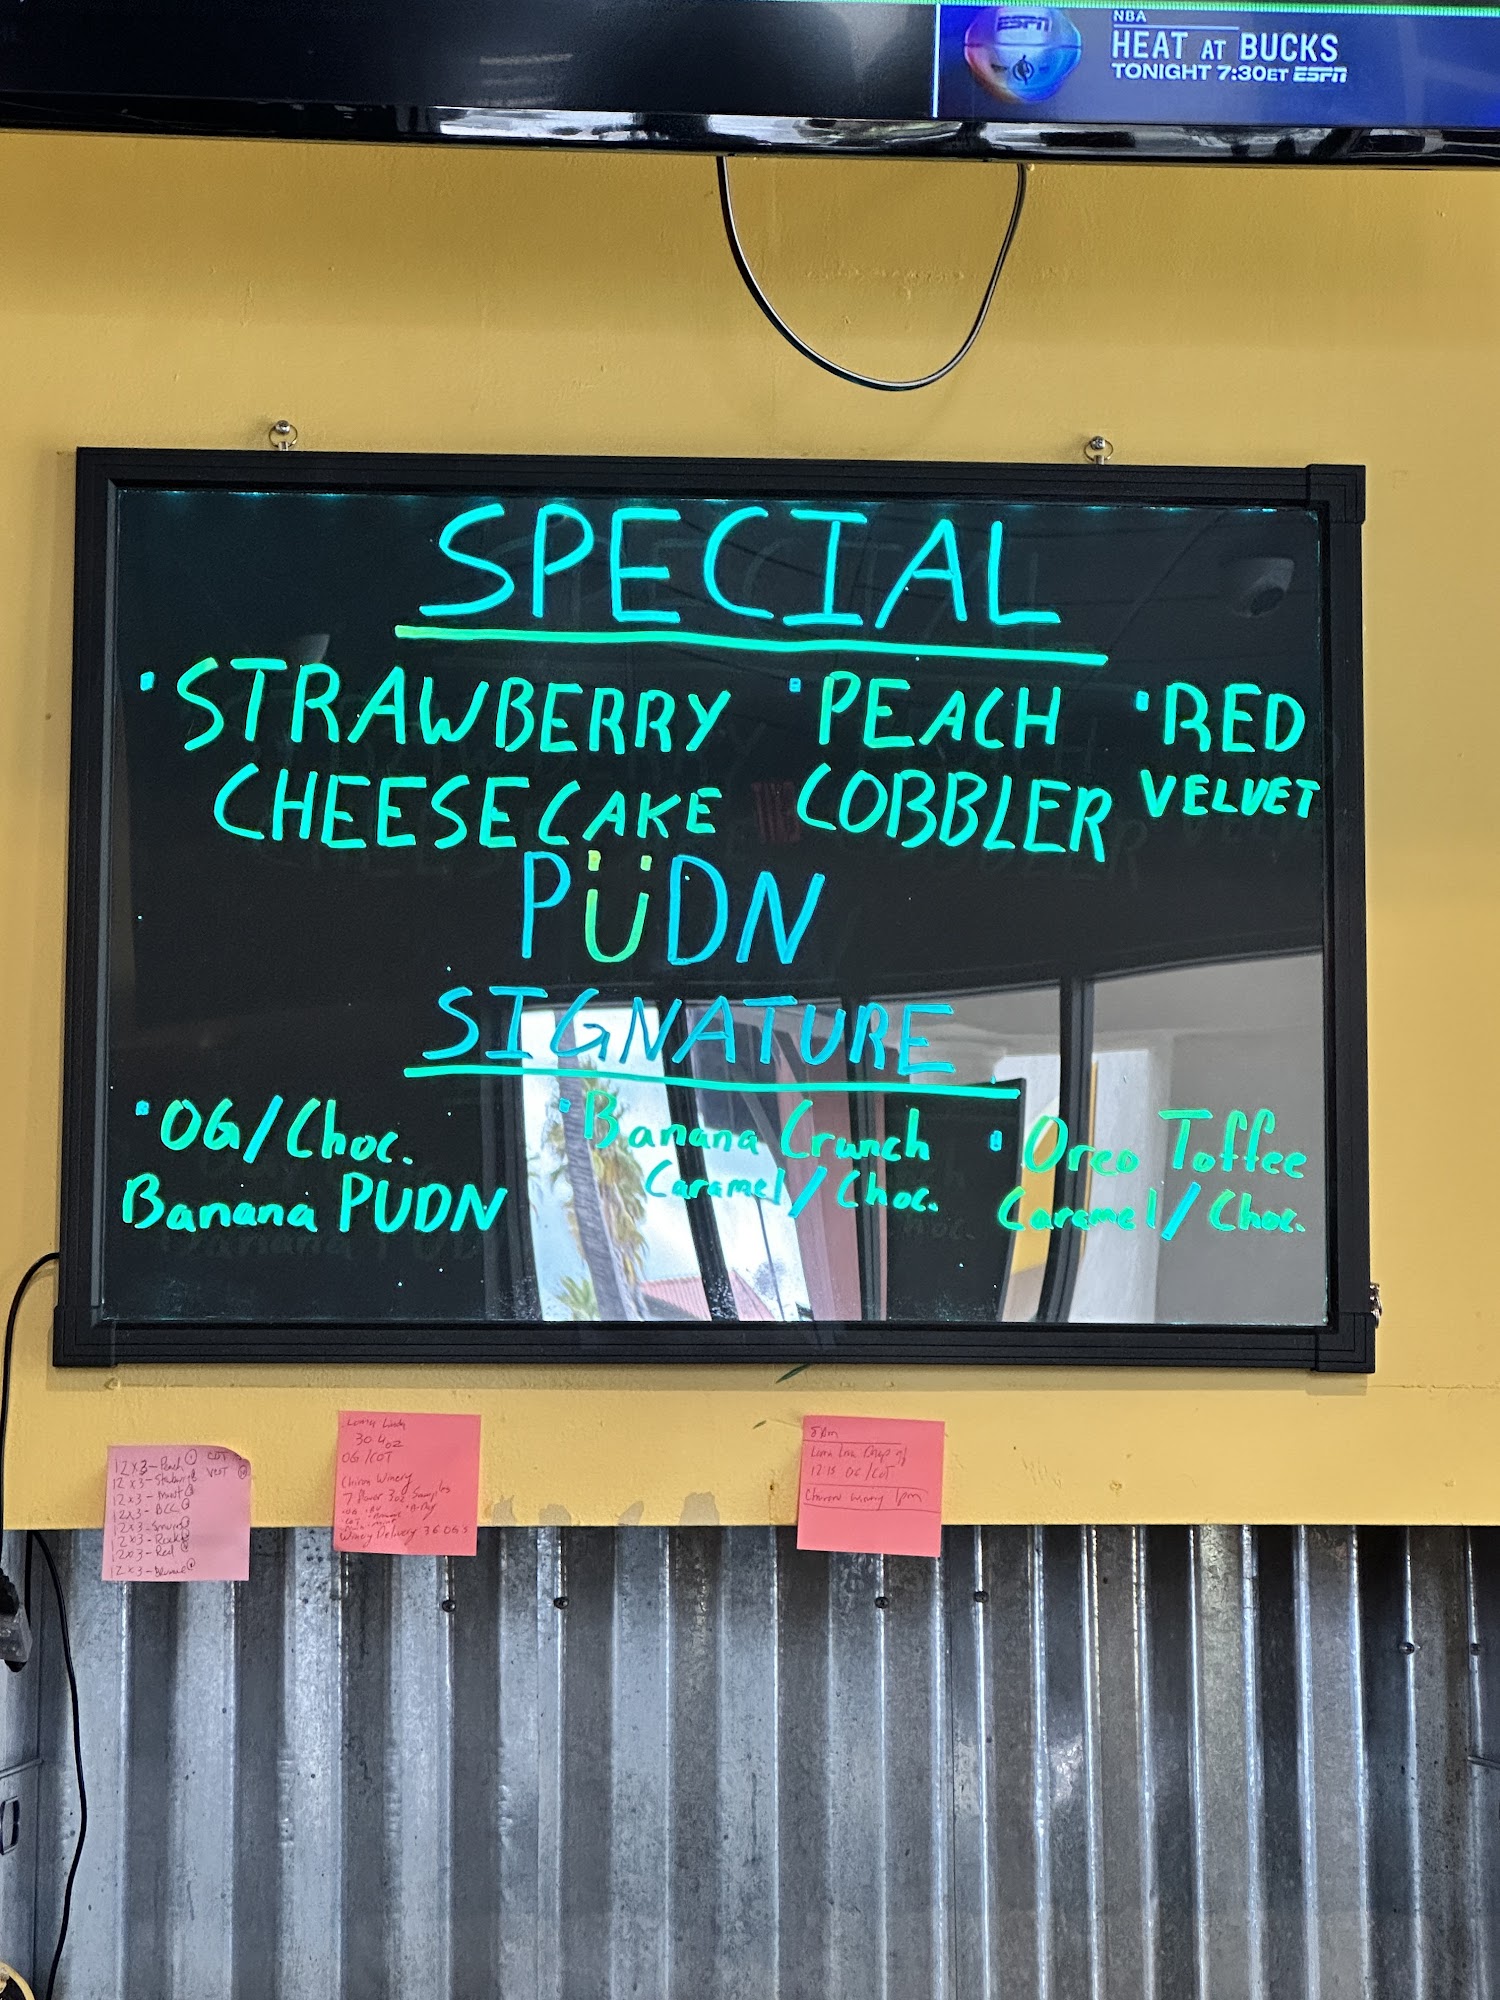 ESPN
NBA
HEAT AT BUCKS
TONIGHT 7:30ET ESPN
SPECIAL
• STRAWBERRY CHEESECAKE
• PEACH COBBLER
• RED VELVET
PÜDN
SIGNATURE
• OG/Choc.
Banana PUDN
• Banana Crunch
Caramel/Choc.
• Oreo Toffee
Caramel/Choc.
12x3-Peach
12x3-
12x3-
12x3-BCC
12x3-
12x3-
12x3-Red
12x3-
30 4oz
OG/COT
Winery
7 3oz Samples
Winery Delivery 36 OG's
Drop off
12:15 OG/COT
1pm